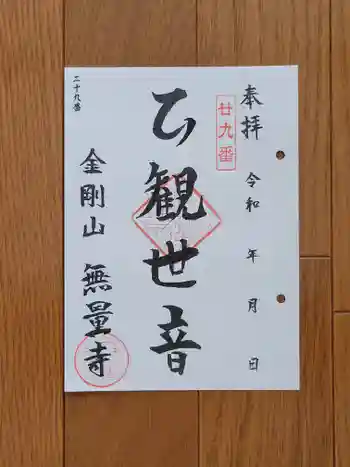 奉拝
令和 年 月 日
廿九番
観世音
金剛山 無量寺
二十九番